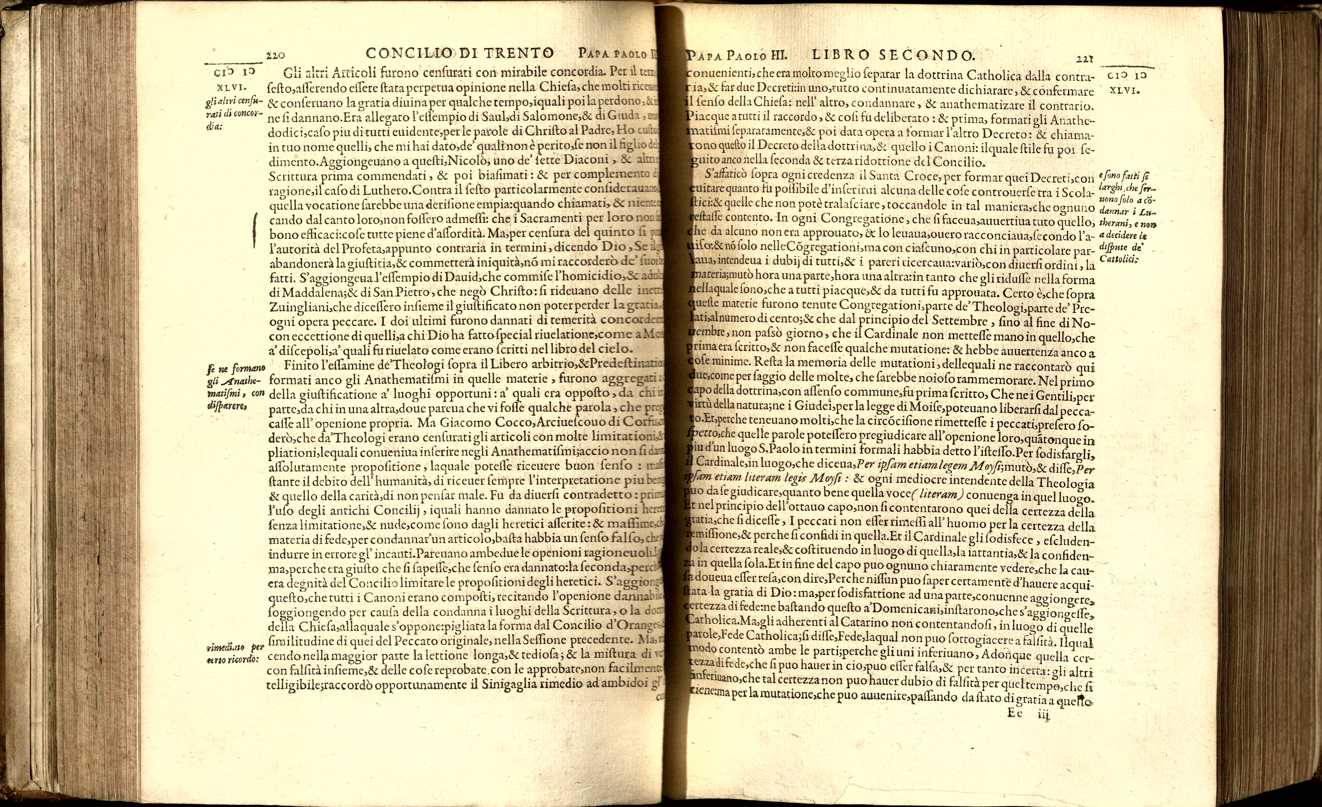 220 CONCILIO DI TRENTO PAPA PAOLO
CIↃ IↃ
XLVI.
gli altri cenſu-
rati di concor-
dia:
Gli altri Articoli furono cenſurati con mirabile concordia. Per il
ſeſto, aſſerendo eſſere ſtata perpetua opinione nella Chieſa, che molti
& conſeruano la gratia diuina per qualche tempo, iquali poi la perdono, &
ne ſi dannano. Era allegato l'eſſempio di Saul, di Salomone, & di Giuda,
dodici, caſo piu di tutti euidente, per le parole di Chriſto al Padre, Ho
in tuo nome quelli, che mi hai dato, de' quali non è perito, ſe non il figlio
dimento. Aggiongeuano a queſti, Nicolò, uno de' ſette Diaconi, & altri
Scrittura prima commendati, & poi biaſimati: & per complemento
ragione, il caſo di Luthero. Contra il ſeſto particolarmente conſiderauano
quella vocatione ſarebbe una deriſione empia: quando chiamati, & niente
cando dal canto loro, non foſſero admeſſi: che i Sacramenti per loro non
bono efficaci: coſe tutte piene d'aſſordità. Ma, per cenſura del quinto ſi
l'autorità del Profeta, appunto contraria in termini, dicendo Dio, Se il
abandonerà la giuſtitia, & commetterà iniquità, nō mi raccorderò de' ſuoi
fatti. S'aggiongeua l'eſſempio di Dauid, che commiſe l'homicidio, &
di Maddalena; & di San Pietro, che negò Chriſto: ſi rideuano delle
Zuingliani, che diceſſero inſieme il giuſtificato non poter perder la gratia,
ogni opera peccare. I doi ultimi furono dannati di temerità
con eccettione di quelli, a chi Dio ha fatto ſpecial riuelatione, come a
a' diſcepoli, a' quali fu riuelato come erano ſcritti nel libro del cielo.
ſe ne formano
gli Anathe-
matiſmi, con
diſparere,
Finito l'eſſamine de' Theologi ſopra il Libero arbitrio, &
formati anco gli Anathematiſmi in quelle materie, furono aggregati
della giuſtificatione a' luoghi opportuni: a' quali era oppoſto, da chi in
parte, da chi in una altra, doue parcua che vi foſſe qualche parola, che
caſſe all'openione propria. Ma Giacomo Cocco, Arciueſcouo di
derò, che da' Theologi erano cenſurati gli articoli con molte limitationi,
pliationi, lequali conueniua inſerire negli Anathematiſmi; accio non ſi
aſſolutamente propoſitione, laquale poteſſe riceuere buon ſenſo:
ſtante il debito dell'humanità, di riceuer ſempre l'interpretatione piu
& quello della carità, di non penſar male. Fu da diuerſi contradetto:
l'uſo degli antichi Concilij, iquali hanno dannato le propoſitioni
ſenza limitatione, & nude, come ſono dagli heretici aſſerite: & maſſime,
materia di fede, per condannar'un articolo, baſta habbia un ſenſo falſo,
indurre in errore gl' incauti. Pareuano ambedue le openioni ragioneuoli.
ma, perche era giuſto che ſi ſapeſſe, che ſenſo era dannato: la ſeconda,
era degnità del Concilio limitare le propoſitioni degli heretici.
queſto, che tutti i Canoni erano compoſti, recitando l'openione dannabile
ſoggiongendo per cauſa della condanna i luoghi della Scrittura, o la
della Chieſa, alla quale s'oppone: pigliata la forma dal Concilio d'Oranges
rimediato per
certo ricordo:
ſimilitudine di quei del Peccato originale, nella Seſſione precedente.
cendo nella maggior parte la lettione longa, & tedioſa; & la miſtura di
con falſità inſieme, & delle coſe reprobate con le approbate, non facilmente
telligibile; raccordò opportunamente il Sinigaglia rimedio ad ambidoi
PAPA PAOLO III. LIBRO SECONDO. 221
CIↃ IↃ
XLVI.
conuenienti, che era molto meglio ſeparar la dottrina Catholica dalla contra-
ria, & far due Decreti: in uno, tutto continuatamente dichiarare, & confermare
il ſenſo della Chieſa: nell' altro, condannare, & anathematizare il contrario.
Piacque a tutti il raccordo, & coſi fu deliberato: & prima, formati gli Anathe-
matiſmi ſeparatamente, & poi data opera a formar l'altro Decreto: & chiama-
rono queſto il Decreto della dottrina, & quello i Canoni: ilquale ſtile fu poi ſe-
guito anco nella ſeconda & terza ridottione del Concilio.
e ſono fatti ſi
larghi, che ſer-
uono ſolo a cō-
dannar i Lu-
therani, e non
a decidere le
diſpute de'
Catolici:
S'affaticò ſopra ogni credenza il Santa Croce, per formar quei Decreti, con
euitare quanto fu poſſibile d'inſerirui alcuna delle coſe controuerſe tra i Scola-
ſtici: & quelle che non potè tralaſciare, toccandole in tal maniera, che ognuno
reſtaſſe contento. In ogni Congregatione, che ſi faceua, auuertiua tuto quello,
che da alcuno non era approuato, & lo leuaua, ouero racconciaua, ſecondo l'a-
uiſo: & nō ſolo nelle Cōgregationi, ma con ciaſcuno, con chi in particolare par-
laua, intendeua i dubij di tutti, & i pareri ricercaua: variò, con diuerſi ordini, la
materia; mutò hora una parte, hora una altra: in tanto che gli riduſſe nella forma
nella quale ſono, che a tutti piacque, & da tutti fu approuata. Certo è, che ſopra
queſte materie furono tenute Congregationi, parte de' Theologi, parte de' Pre-
lati, al numero di cento; & che dal principio del Settembre, fino al fine di No-
uembre, non paſsò giorno, che il Cardinale non metteſſe mano in quello, che
prima era ſcritto, & non faceſſe qualche mutatione: & hebbe auuertenza anco a
coſe minime. Reſta la memoria delle mutationi, dellequali ne raccontarò qui
due, come per ſaggio delle molte, che ſarebbe noioſo rammemorare. Nel primo
capo della dottrina, con aſſenſo commune, fu prima ſcritto, Che ne i Gentili, per
virtù della natura; ne i Giudei, per la legge di Moiſe, poteuano liberarſi dal pecca-
to. Et, perche teneuano molti, che la circōciſione rimetteſſe i peccati, preſero ſo-
ſpetto, che quelle parole poteſſero pregiudicare all'openione loro, quātonque in
piu d'un luogo S. Paolo in termini formali habbia detto l'iſteſſo. Per ſodisfargli,
il Cardinale, in luogo, che diceua, Per ipſam etiam legem Moyſi; mutò, & diſſe, Per
ipſam etiam literam legis Moyſi: & ogni mediocre intendente della Theologia
puo da ſe giudicare, quanto bene quella voce (literam) conuenga in quel luogo.
Et nel principio dell'ottauo capo, non ſi contentarono quei della certezza della
gratia, che ſi diceſſe, I peccati non eſſer rimeſſi all' huomo per la certezza della
remiſſione, & perche ſi confidi in quella. Et il Cardinale gli ſodisfece, eſcluden-
do la certezza reale, & coſtituendo in luogo di quella, la iattantia, & la confiden-
za in quella ſola. Et in fine del capo puo ognuno chiaramente vedere, che la cau-
ſa doueua eſſer reſa, con dire, Perche niſſun può ſaper certamente d'hauere acqui-
ſtata la gratia di Dio: ma, per ſodisfattione ad una parte, conuenne aggiongere,
certezza di fede: ne baſtando queſto a' Domenicani, inſtarono, che s'aggiongeſſe,
Catholica. Ma, gli adherenti al Catarino non contentandoſi, in luogo di quelle
parole, Fede Catholica; ſi diſſe, Fede, laqual non puo ſottogiacere a falſità. Il qual
modo contentò ambe le parti; perche gli uni inferiuano, Adonque quella cer-
tezza di fede, che ſi puo hauer in cio, puo eſſer falſa, & per tanto incerta: gli altri
inferiuano, che tal certezza non puo hauer dubio di falſità per quel tempo, che ſi
tiene: ma per la mutatione, che puo auuenire, paſſando da ſtato di gratia a queſto
Ee iij